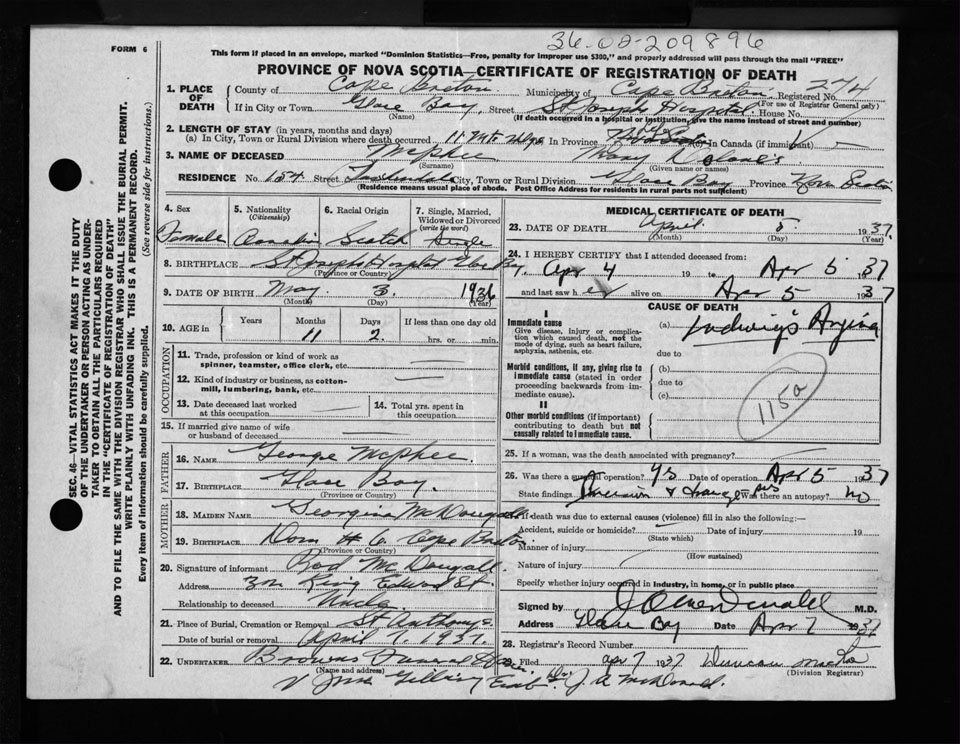 36-02-209896
FORM 6
This form if placed in an envelope, marked "Dominion Statistics—Free, penalty for improper use $300," and properly addressed will pass through the mail "FREE"
PROVINCE OF NOVA SCOTIA—CERTIFICATE OF REGISTRATION OF DEATH
SEC. 46—VITAL STATISTICS ACT MAKES IT THE DUTY
OF THE UNDERTAKER OR PERSON ACTING AS UNDER-
TAKER TO OBTAIN ALL THE PARTICULARS REQUIRED
IN THE "CERTIFICATE OF REGISTRATION OF DEATH"
AND TO FILE THE SAME WITH THE DIVISION REGISTRAR WHO SHALL ISSUE THE BURIAL PERMIT.
WRITE PLAINLY WITH UNFADING INK. THIS IS A PERMANENT RECORD.
Every item of information should be carefully supplied. (See reverse side for instructions.)
1. PLACE OF DEATH County of Cape Breton Municipality of Cape Breton Registered No. 274
(For use of Registrar General only)
If in City or Town Glace Bay, Street St Joseph Hospital House No.
(Name) (If death occurred in a hospital or institution, give the name instead of street and number)
2. LENGTH OF STAY (in years, months and days)
(a) In City, Town or Rural Division where death occurred 11 Mt In Province in Canada (if immigrant)
3. NAME OF DECEASED McPhee Mary
(Surname) (Given name or names)
RESIDENCE No. 154 Street City, Town or Rural Division Glace Bay Province Nova Scotia
(Residence means usual place of abode. Post Office Address for residents in rural parts not sufficient)
4. Sex 5. Nationality (Citizenship) 6. Racial Origin 7. Single, Married, Widowed or Divorced (write the word)
Female Canadian Scotch Single
8. BIRTHPLACE St Josephs Hospital Glace Bay
(Province or Country)
9. DATE OF BIRTH May 3 1936
(Month) (Day) (Year)
10. AGE in Years Months Days If less than one day old
11 2 hrs. or min.
OCCUPATION
11. Trade, profession or kind of work as spinner, teamster, office clerk, etc.
12. Kind of industry or business, as cotton-mill, lumbering, bank, etc.
13. Date deceased last worked at this occupation 14. Total yrs. spent in this occupation
15. If married give name of wife or husband of deceased
FATHER
16. NAME George McPhee
17. BIRTHPLACE Glace Bay
(Province or Country)
MOTHER
18. MAIDEN NAME Georgina McDougall
19. BIRTHPLACE Dom # 6 Cape Breton
(Province or Country)
20. Signature of informant Rod McDougall
Address King Edward St.
Relationship to deceased Uncle
21. Place of Burial, Cremation or Removal St Anthonys
Date of burial or removal April 7 1937
22. UNDERTAKER Browns Funeral Home
(Name and address)
J. A. McDonald
MEDICAL CERTIFICATE OF DEATH
23. DATE OF DEATH April 5 1937
(Month) (Day) (Year)
24. I HEREBY CERTIFY that I attended deceased from:
Apr 4 19 to Apr 5 1937
and last saw her alive on Apr 5 1937
CAUSE OF DEATH
I
Immediate cause
Give disease, injury or complication which caused death, not the mode of dying, such as heart failure, asphyxia, asthenia, etc.
(a) Ludwig's Angina
due to
Morbid conditions, if any, giving rise to immediate cause (stated in order proceeding backwards from immediate cause).
(b)
due to
(c)
II
Other morbid conditions (if important) contributing to death but not causally related to immediate cause.
115a
25. If a woman, was the death associated with pregnancy?
26. Was there a surgical operation? Yes Date of operation Apr 5 1937
State findings Was there an autopsy? No
27. If death was due to external causes (violence) fill in also the following:—
Accident, suicide or homicide? Date of injury 19
(State which)
Manner of injury
(How sustained)
Nature of injury
Specify whether injury occurred in industry, in home, or in public place
Signed by M.D.
Address Glace Bay Date Apr 7 1937
28. Registrar's Record Number
29. Filed Apr 7 1937 Duncan
(Division Registrar)